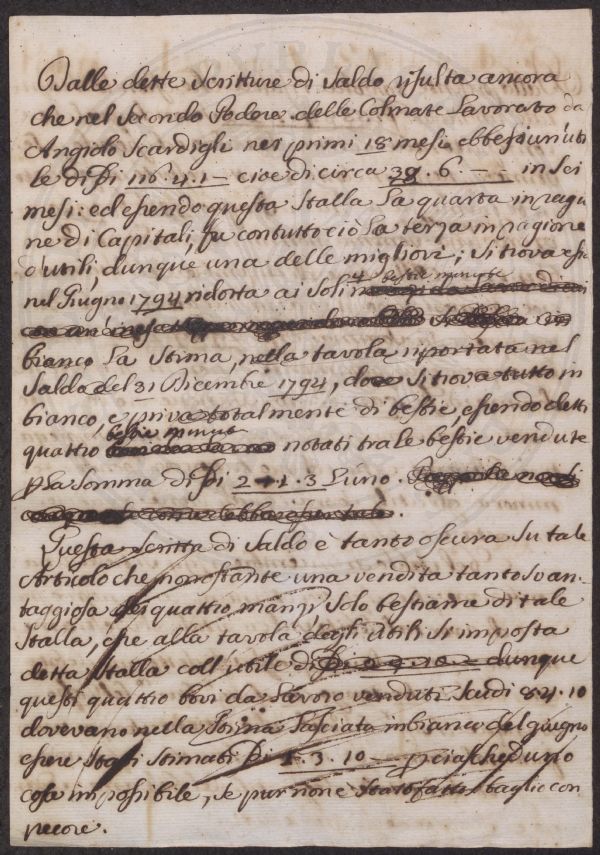 Dalle dette Scritture di Saldo risulta ancora
che nel Secondo Podere delle Colmate Lavorato da
Angiolo Scardigli nei primi 18 mesi ebbesi un'uti
le di 116.4.1 – cioè di circa 38.6 – in Sei
mesi: ed essendo questa Stalla La quarta in ragio
ne di Capitali, fu con tutto ciò La terza in ragione
d'utili, dunque una delle migliori; Si trova
nel Giugno 1794 ridotta ai Soli 4 bestie minute
bianco La Stima, nella tavola riportata nel
Saldo del 31 Dicembre 1794, dove Si trova tutto in
bianco, e priva totalmente di bestie, essendo detti
quattro bestie minute notati tra le bestie vendute
p La Somma di 2.1.3 L'uno.
Questa Scritta di Saldo è tanto oscura Su tale
Articolo che nonostante una vendita tanto Svan-
taggiosa dei quattro manzi Solo bestiame di tale
Stalla, che alla tavola degli Utili Si imposta
detta Stalla coll'utile di dunque
questi quattro bovi da Lavoro venduti Scudi 84.10
dovevano nella Stima Lasciata in bianco del giugno
essere Stati Stimati 1.3.10 – p ciascheduno
cosa impossibile, Se pur non è baglio con
pecore.